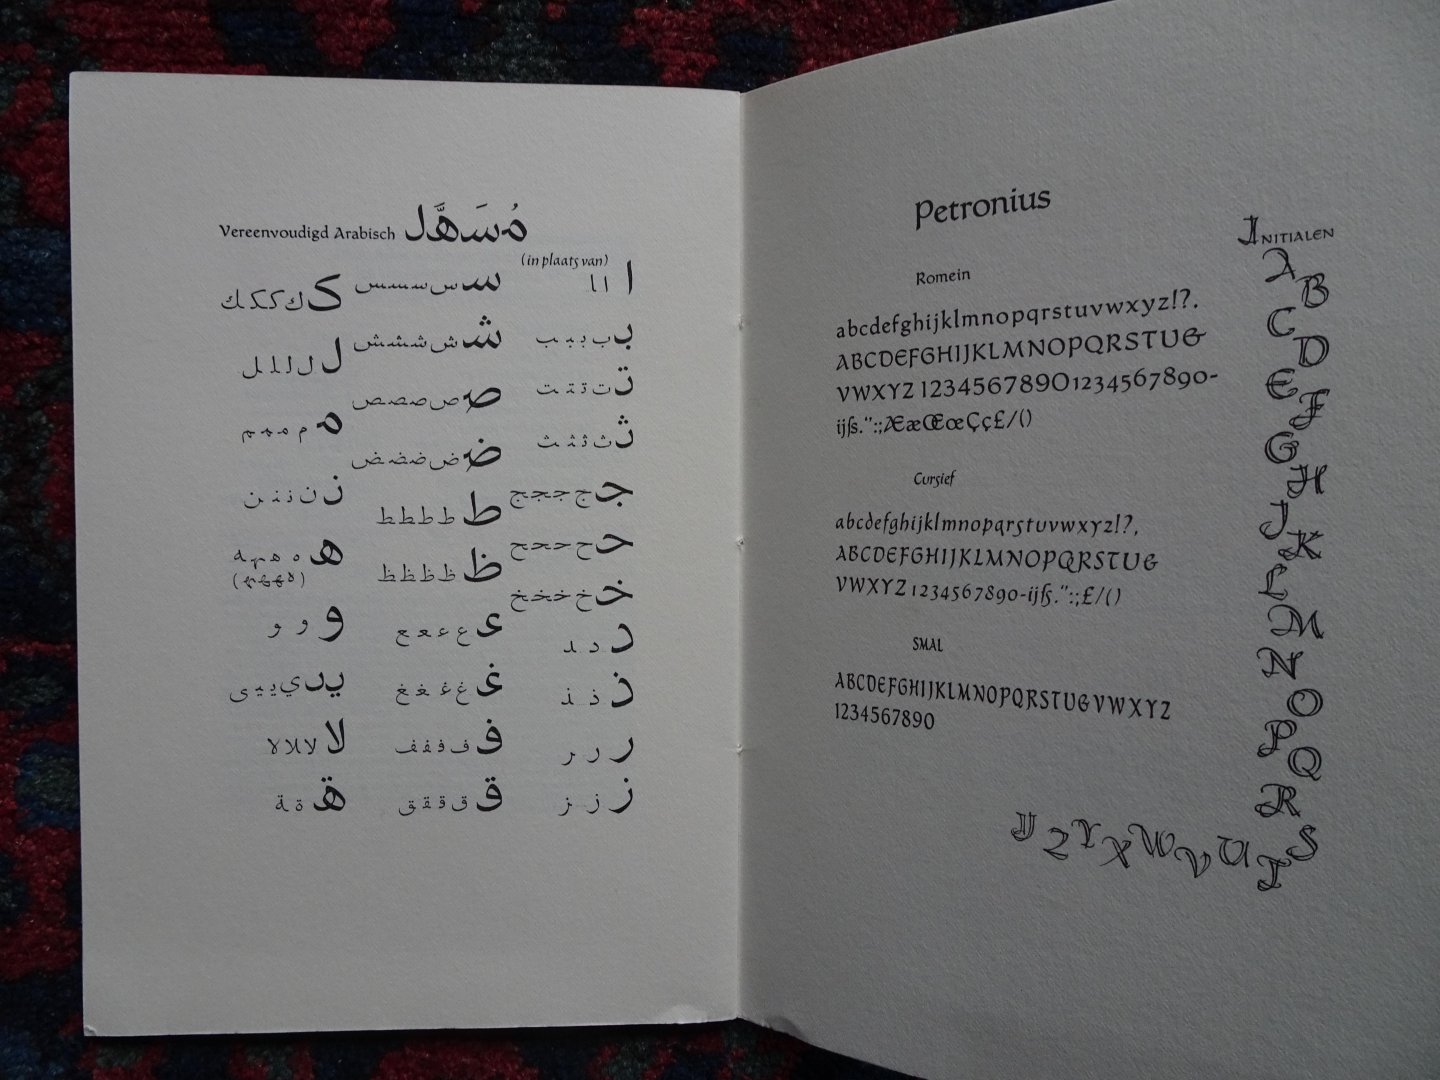 Vereenvoudigd Arabisch مُسَهَّل
(in plaats van)
ا ا ا
ب ب ب ب ب
ت ت ت ت ت
ث ث ث ث ث
ج ج ج ج ج
ح ح ح ح ح
خ خ خ خ خ
د د د
ذ ذ ذ
ر ر ر
ز ز ز
س س س س س
ش ش ش ش ش
ص ص ص ص ص
ض ض ض ض ض
ط ط ط ط ط
ظ ظ ظ ظ ظ
ع ع ع ع ع
غ غ غ غ غ
ف ف ف ف ف
ق ق ق ق ق
ك ك ك ك ك
ل ل ل ل ل
م م م م م
ن ن ن ن ن
ه ه ه ه ه
(ه ه ه ه)
و و و
ي ي ي ي ى
لا لا لا لا
ة ة ة
Petronius
Romein
abcdefghijklmnopqrstuvwxyz!?.
ABCDEFGHIJKLMNOPQRSTUG
VWXYZ 12345678901234567890-
ijſs.":;ÆæŒœÇç£/()
Cursief
abcdefghijklmnopqrstuvwxyz!?,
ABCDEFGHIJKLMNOPQRSTUG
VWXYZ 1234567890-ijſs.":;£/()
SMAL
ABCDEFGHIJKLMNOPQRSTUGVWXYZ
1234567890
INITIALEN
A
B
C
D
E
F
G
H
J
K
L
M
N
O
P
Q
R
S
T
U
V
W
X
Y
Z
IJ